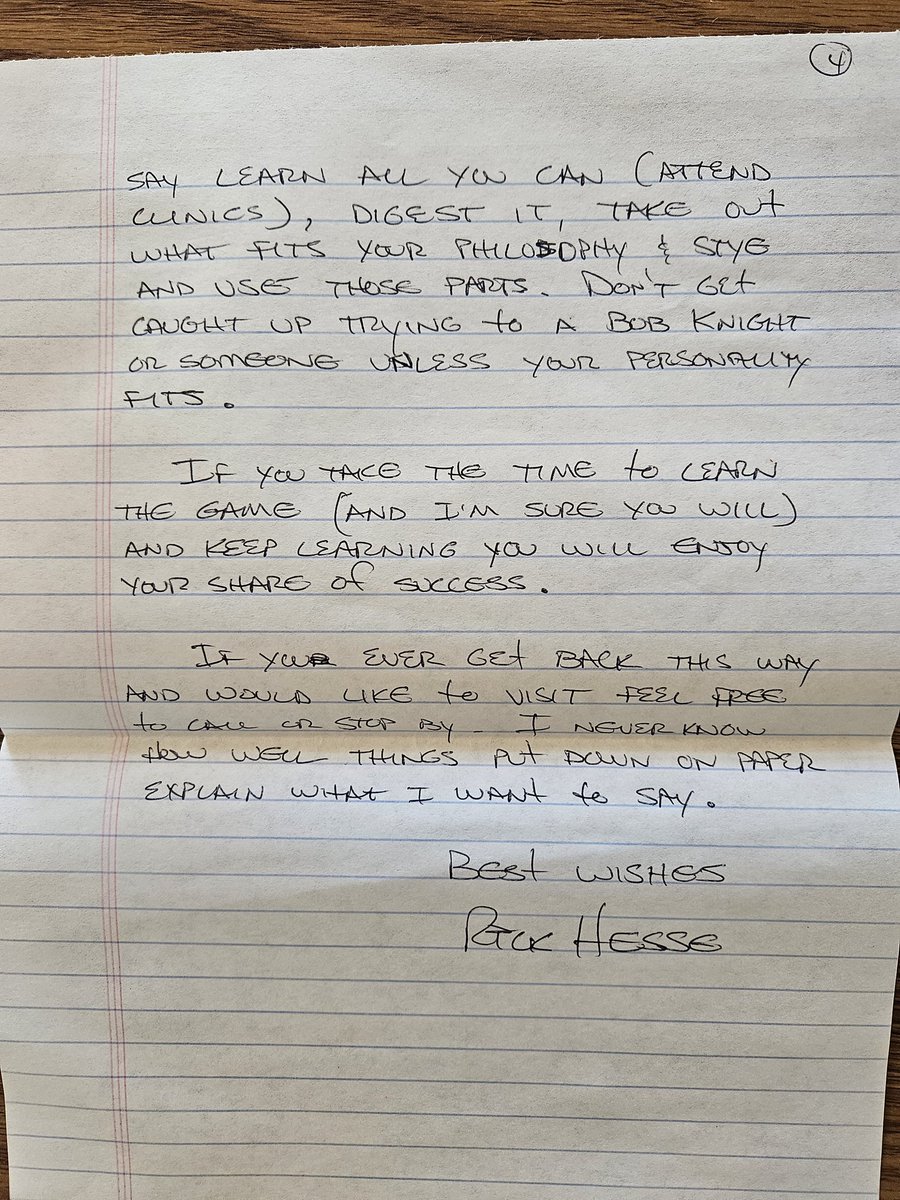 4
SAY LEARN ALL YOU CAN (ATTEND
CLINICS), DIGEST IT, TAKE OUT
WHAT FITS YOUR PHILOSOPHY & STYE
AND USE THOSE PARTS. DON'T GET
CAUGHT UP TRYING to A BOB KNIGHT
OR SOMEONE UNLESS YOUR PERSONALITY
FITS.
IF YOU TAKE THE TIME to LEARN
THE GAME (AND I'M SURE YOU WILL)
AND KEEP LEARNING YOU WILL ENJOY
YOUR SHARE of SUCCESS.
IF YOU EVER GET BACK THIS WAY
AND WOULD LIKE to VISIT FEEL FREE
to CALL OR STOP BY. I NEVER KNOW
HOW WELL THINGS PUT DOWN ON PAPER
EXPLAIN WHAT I WANT to SAY.
BEST WISHES
RICK HESSE